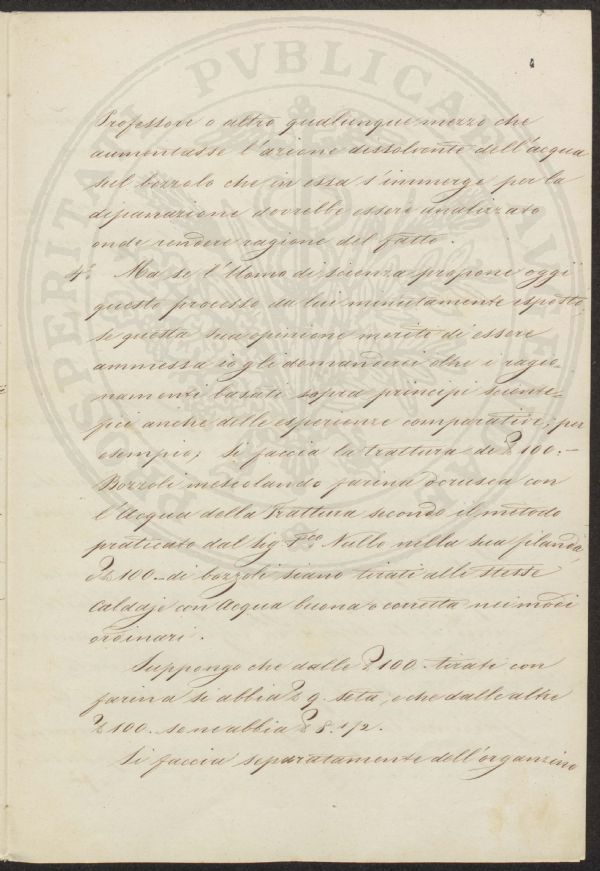 4
Professore o altro qualunque mezzo che
aumentasse l'azione dissolvente dell'acqua
sul bozzolo che in essa s'immerge per la
dipanazione dovrebbe essere analizzato
onde rendere ragione del fatto.
4°. Ma se l'Uomo di scienza propone oggi
questo processo da lui minutamente esposto,
se questa sua opinione merita di essere
ammessa io gli domanderei oltre i ragio-
namenti basati sopra principj scienti-
fici anche delle esperienze comparative; per
esempio; Si faccia la trattura di ℔ 100.-
Bozzoli mescolando farina o crusca con
l'Acqua della Trattura secondo il metodo
praticato dal Sig. Nullo nella sua filanda,
℔ 100.- di bozzoli siano tirati alle stesse
Caldaje con Acqua buona o corretta nei modi
ordinari.
Suppongo che dalle ℔ 100. tirati con
farina si abbia ℔ 9. seta, e che dalle altre
℔ 100. se ne abbia ℔ 8. 1/2.
Si faccia separatamente dell'organzino
PROSPERITATI PVBLICAE